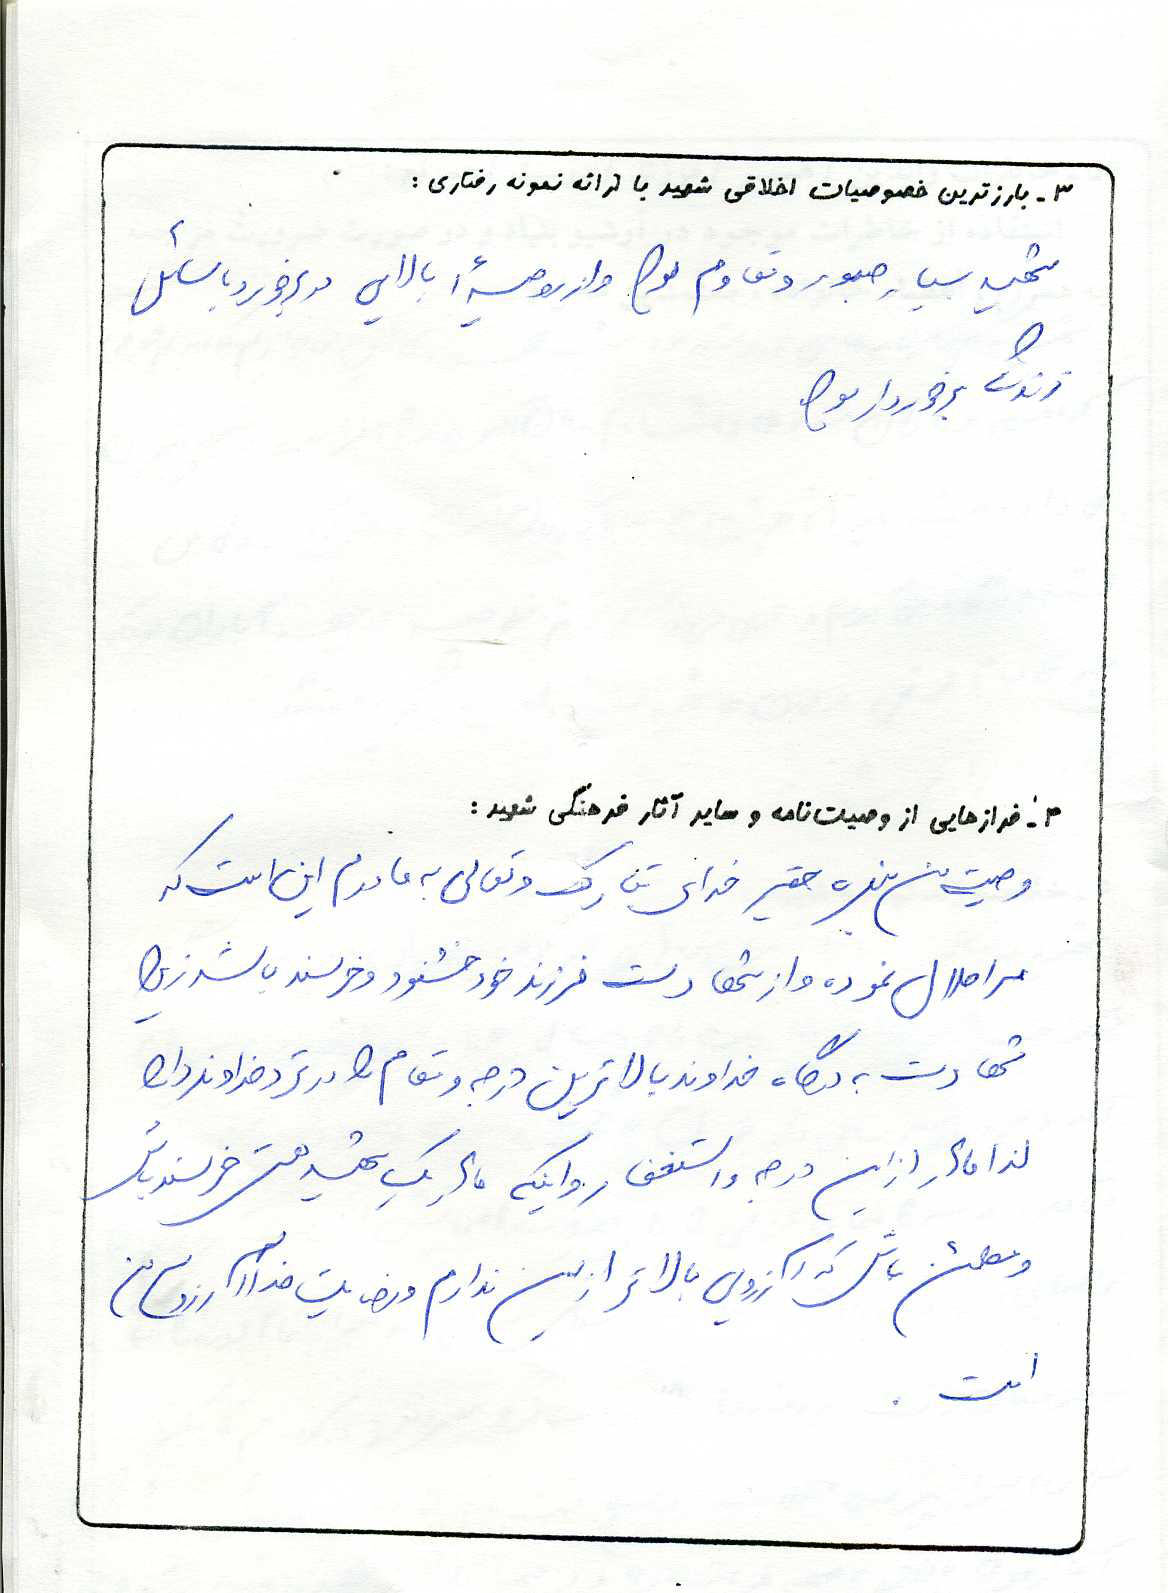 ۳ـ بارزترین خصوصیات اخلاقی شهید با ارائه نمونه رفتاری :
شهید بسیار صبور و مقاوم بود و از روحیهٔ بالایی در برخورد با مسائل
زندگی برخوردار بود
۴ـ فرازهایی از وصیت‌نامه و سایر آثار فرهنگی شهید :
وصیت من بنده حقیر خدای تبارک و تعالی به مادرم این است که
مرا حلال نموده و از شهادت فرزند خود خشنود و خرسند باشد زیرا
شهادت به درگاه خداوند بالاترین درجه و مقام را در نزد خداوند دارد
لذا مادر از این درجه و استغفار و اینکه مادر یک شهید هستی خرسند باش
و مطمئن باش که آرزویی بالاتر از این ندارم و رضایت خدا آرزوی من
است .